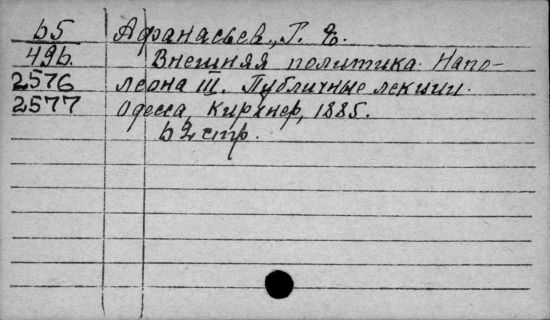 65 Афанасьев, Г. Е.
496. Внешняя политика Напо-
2576 леона III. Публичные лекции.
2577 Одесса, Кирхнер, 1885.
62 стр.